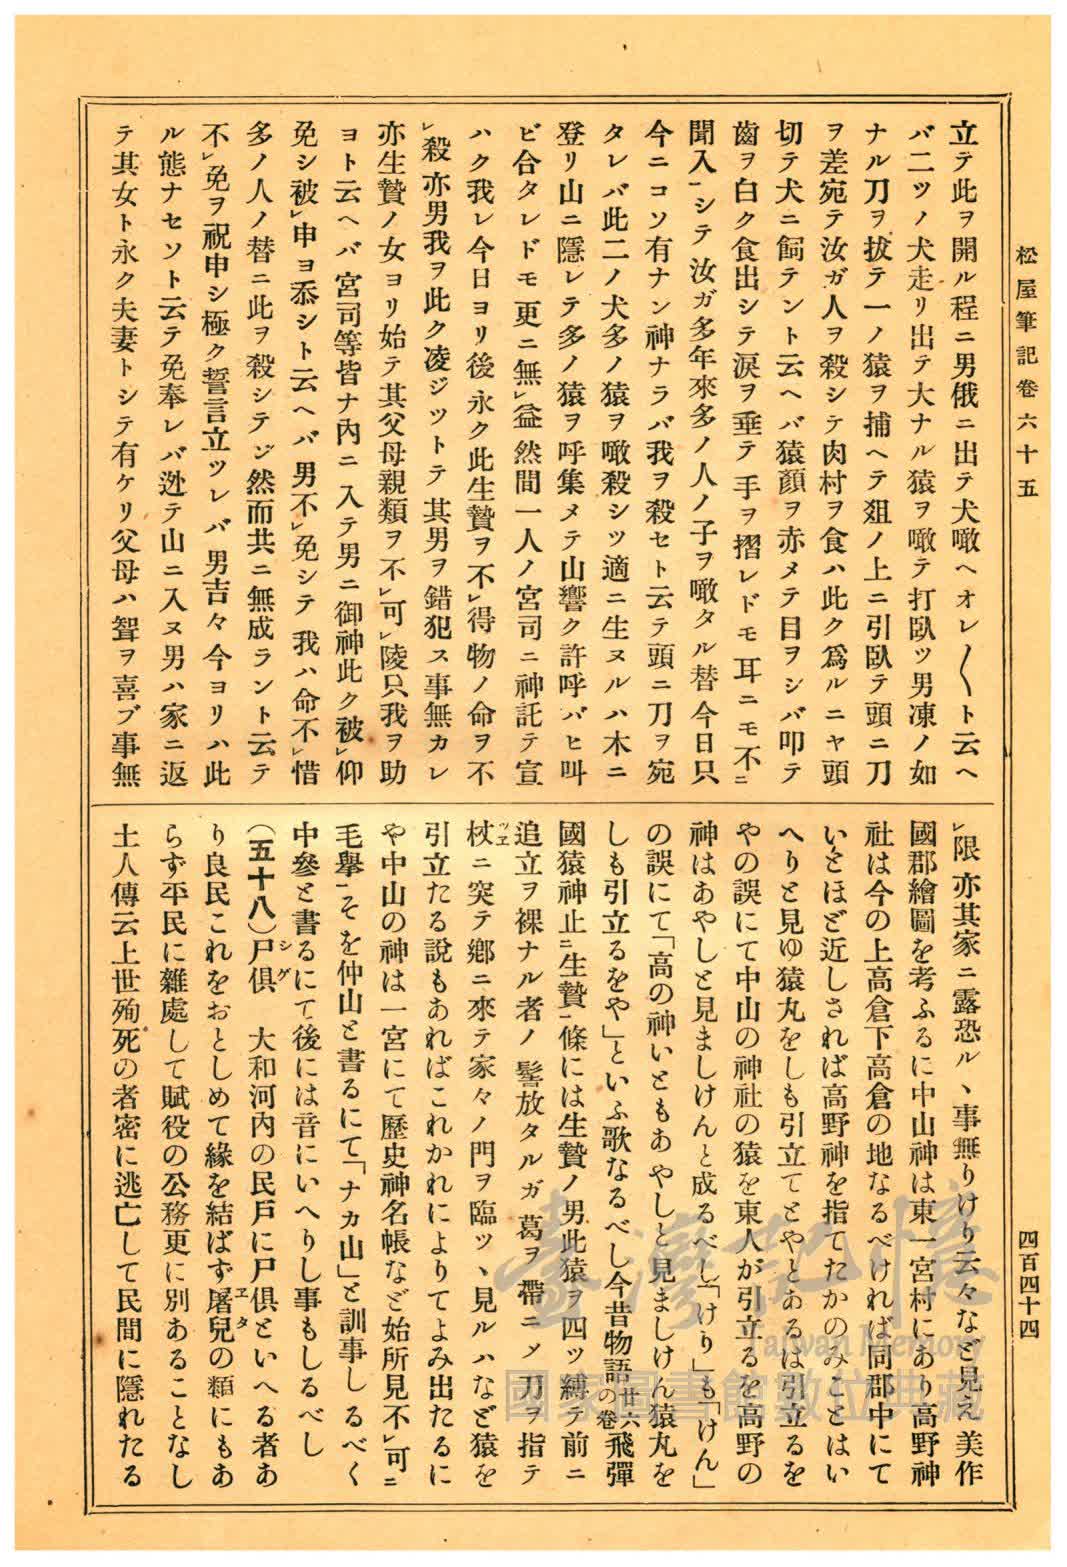 松屋筆記卷六十五
四百四十四
立テ此ヲ開ル程ニ男俄ニ出テ犬噉ヘオレ〱ト云ヘ
バ二ツノ犬走リ出テ大ナル猿ヲ噉テ打臥ツ男凍ノ如
ナル刀ヲ拔テ一ノ猿ヲ捕ヘテ爼ノ上ニ引臥テ頭ニ刀
ヲ差宛テ汝ガ人ヲ殺シテ肉村ヲ食ハ此ク爲ルニヤ頭
切テ犬ニ飼テント云ヘバ猿顏ヲ赤メテ目ヲシバ叩テ
齒ヲ白ク食出シテ淚ヲ垂テ手ヲ摺レドモ耳ニモ不ニ
聞入一シテ汝ガ多年來多ノ人ノ子ヲ噉タル替今日只
今ニコソ有ナン神ナラバ我ヲ殺セト云テ頭ニ刀ヲ宛
タレバ此二ノ犬多ノ猿ヲ噉殺シツ適ニ生ヌルハ木ニ
登リ山ニ隱レテ多ノ猿ヲ呼集メテ山響ク許呼バヒ叫
ビ合タレドモ更ニ無レ益然間一人ノ宮司ニ神託テ宣
ハク我レ今日ヨリ後永ク此生贄ヲ不レ得物ノ命ヲ不
レ殺亦男我ヲ此ク凌ジツトテ其男ヲ錯犯ス事無カレ
亦生贄ノ女ヨリ始テ其父母親類ヲ不レ可レ陵只我ヲ助
ヨト云ヘバ宮司等皆ナ內ニ入テ男ニ御神此ク被レ仰
免シ被レ申ヨ忝シト云ヘバ男不レ免シテ我ハ命不レ惜
多ノ人ノ替ニ此ヲ殺シテン然而共ニ無成ラント云テ
不レ免ヲ祝申シ極ク誓言立ツレバ男吉々今ヨリハ此
ル態ナセソト云テ免奉レバ迯テ山ニ入ヌ男ハ家ニ返
テ其女ト永ク夫妻トシテ有ケリ父母ハ聟ヲ喜ブ事無
レ限亦其家ニ露恐ル丶事無りけり云々など見え美作
國郡繪圖を考ふるに中山神は東一宮村にあり高野神
社は今の上高倉下高倉の地なるべければ同郡中にて
いとほど近しされば高野神を指てたかのみことはい
へりと見ゆ猿丸をしも引立てとやとあるは引立るを
やの誤にて中山の神社の猿を東人が引立るを高野の
神はあやしと見ましけんと成るべし「けり」も「けん」
の誤にて「高の神いともあやしと見ましけん猿丸を
しも引立るをや」といふ歌なるべし今昔物語廿六の卷飛彈
國猿神止ニ生贄一條には生贄ノ男此猿ヲ四ツ縛テ前ニ
追立ヲ裸ナル者ノ髻放タルガ葛ヲ帶ニメ刀ヲ指テ
杖ニ突テ鄕ニ來テ家々ノ門ヲ臨ツヽ見ルハなど猿を
引立たる說もあればこれかれによりてよみ出たるに
や中山の神は一宮にて歷史神名帳など始所見不レ可ニ
毛擧一そを仲山と書るにて「ナカ山」と訓事しるべく
中參と書るにて後には音にいへりし事もしるべし
(五十八)尸俱シグ　大和河內の民戶に尸俱といへる者あ
り良民これをおとしめて緣を結ばず屠兒エタの類にもあ
らず平民に雜處して賦役の公務更に別あることなし
土人傳云上世殉死の者密に逃亡して民間に隱れたる
臺灣記憶
Taiwan Memory
國家圖書館數位典藏